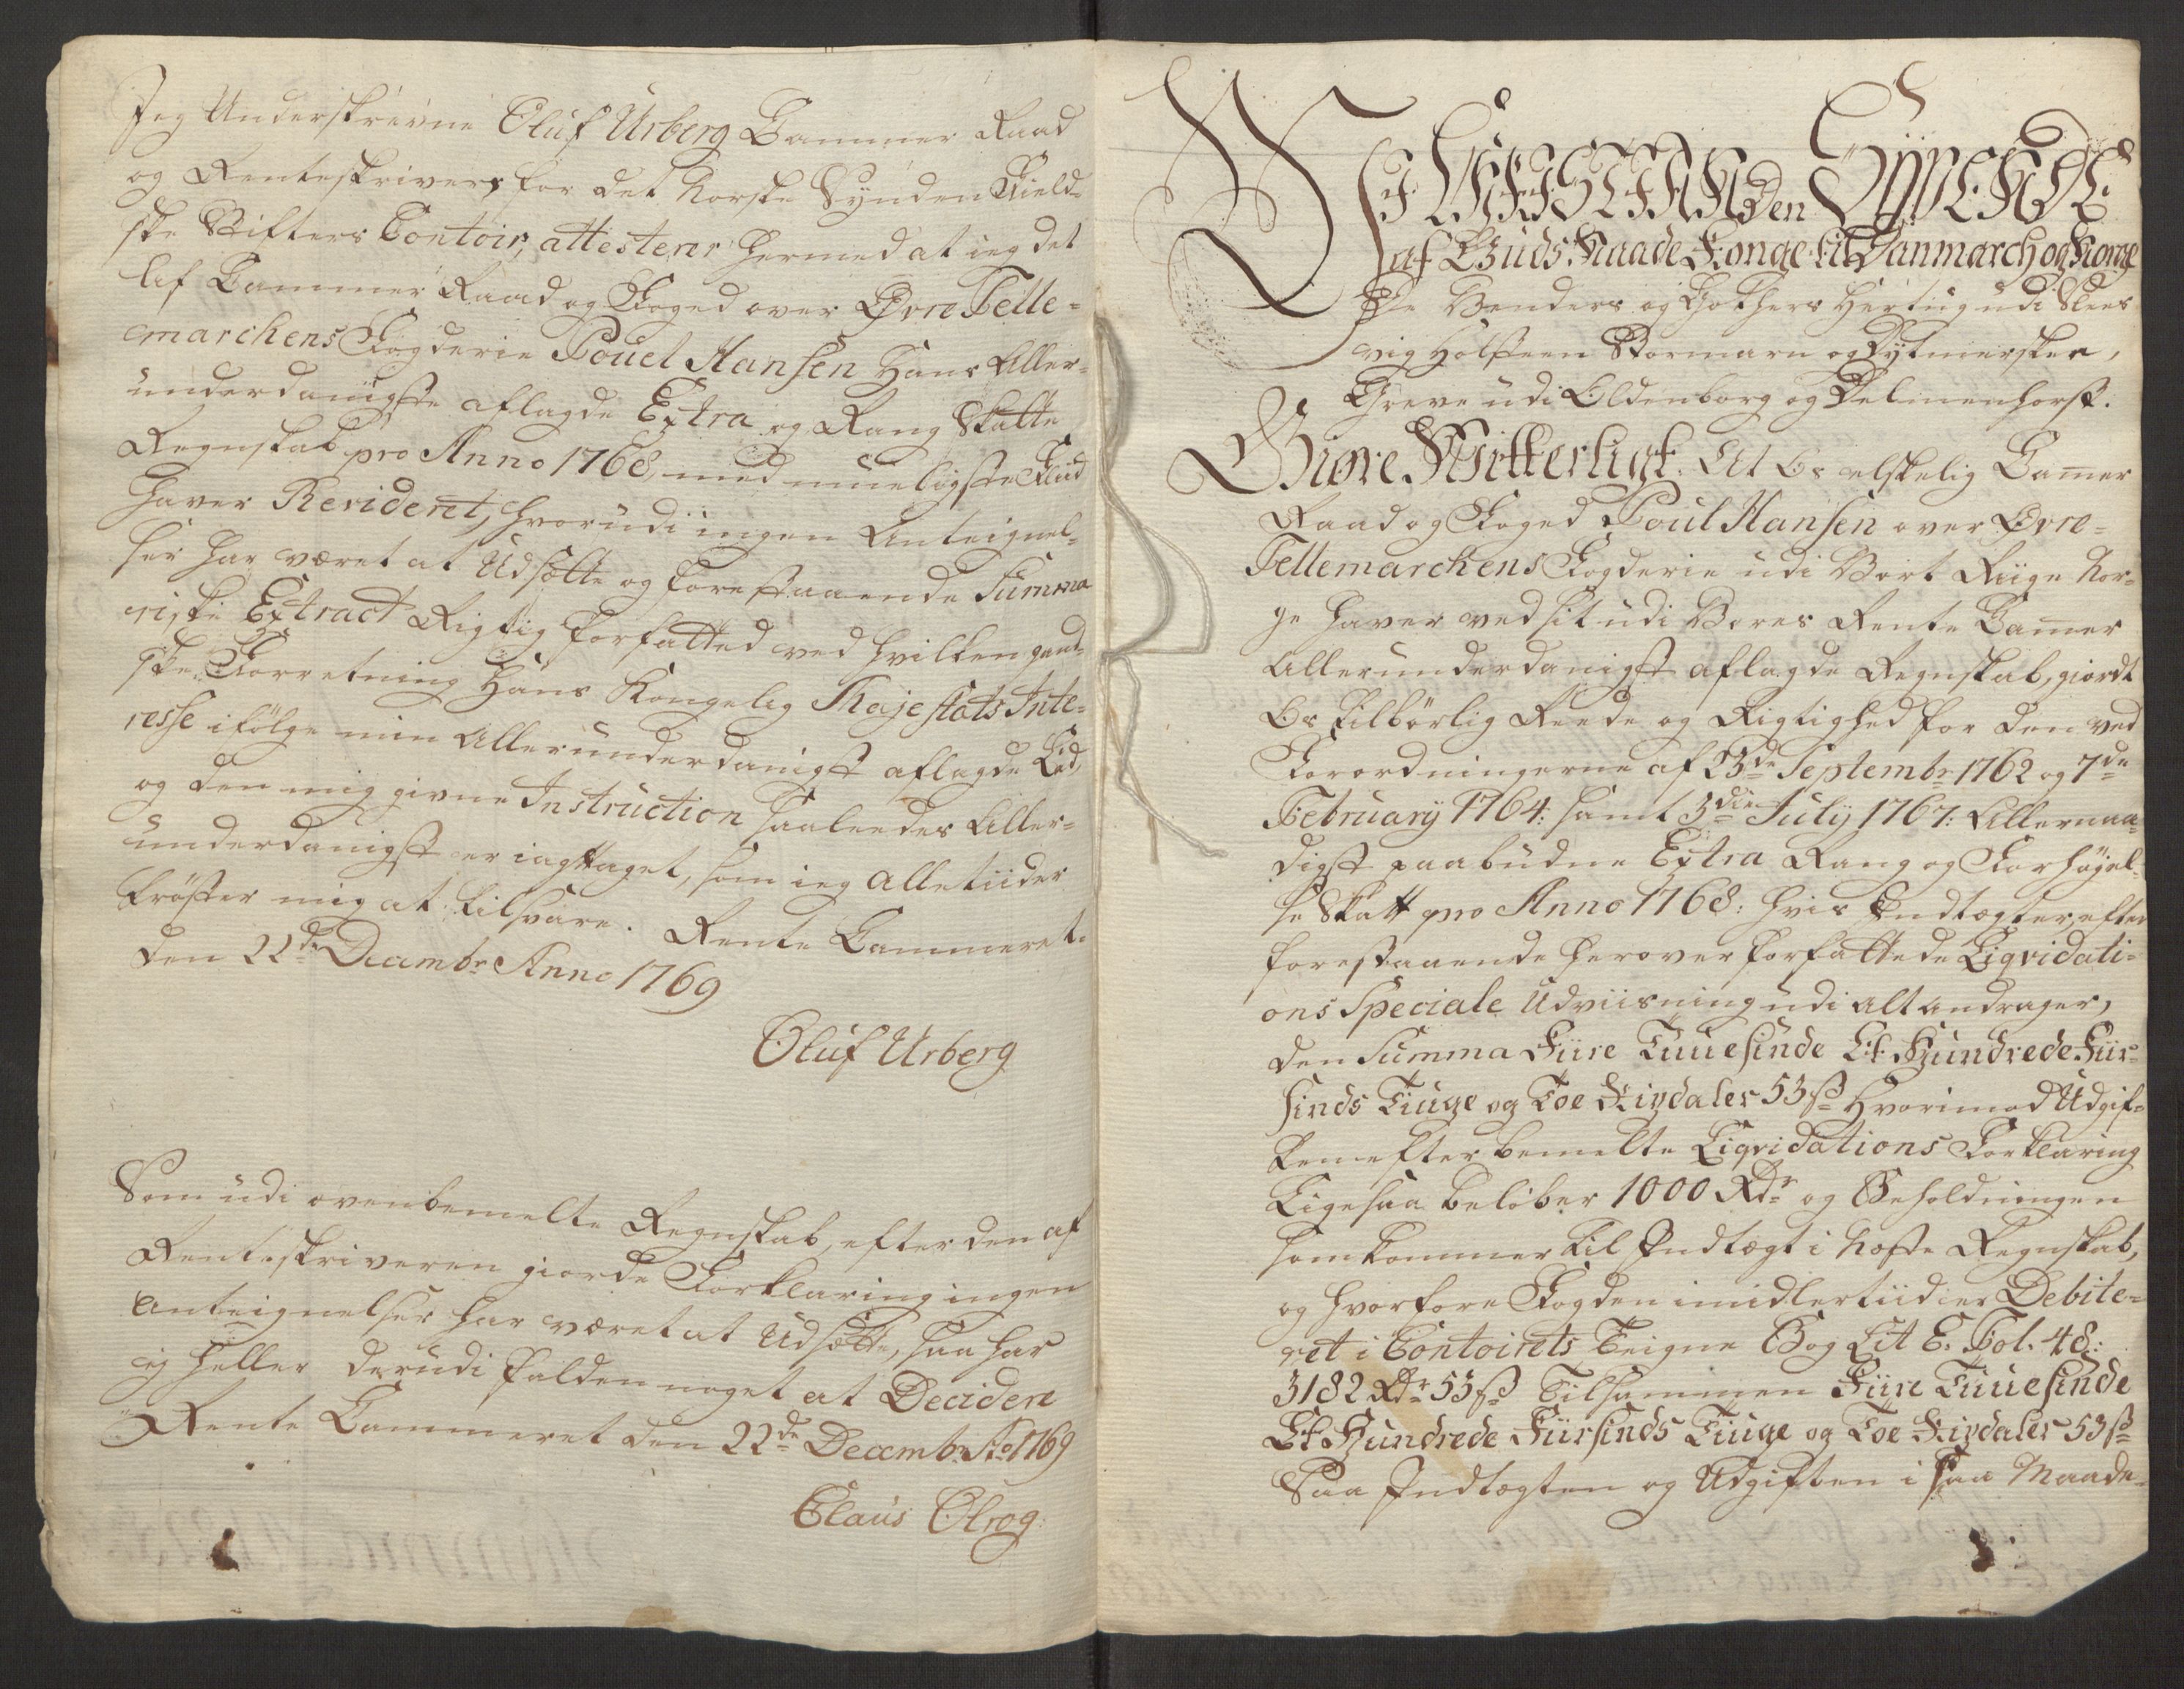 Jeg Underskrevne Oluf Urberg Cammer Raad
og Renteskriver for det Norske Synden Field-
ske Stifters Contoir, attesterer hermed at ieg det
Af Cammer Raad og Foged over Øvre Telle-
marchens Fogderie Pouel Hansen Hans Aller-
underdanigste aflagde Extra og Rang Skatte
Regnskab pro Anno 1768, med mueligste Fliid
haver Revideret, hvorudi ingen Anteignel-
ser har været at Udsætte og forestaaende Summa
riske Extract Rigtig forfatted ved hvilken gand-
ske Forretning Hans Kongelig Majestæts Inte-
resse ifölge min Allerunderdanigst aflagde Eed,
og den mig givne Instruction saaledes Aller-
underdanigst er iagttaget, som ieg alletiider
tröster mig at tilsvare. Rente Cammeret
den 22de Decembr Anno 1769
Oluf Urberg
Som udi ovenbemelte Regnskab, efter den af
Renteskriveren giorde Forklaring ingen
Anteignelser har været at Udsætte, saa har
ej heller derudi falden noget at Decidere
Rente Cammeret den 22de Decembr Ao 1769
Claus Olrog.
Wi CHRISTIAN den SYVENDE
af Guds Naade Konge til Danmarch og Norge
De Venders og Gothers Hertug udi Sles
vig Holsteen Stormarn og Dytmersken,
Greve udi Oldenborg og Delmenhorst.
Giøre Witterligt: At Os elskelig Camer
Raad og Foged Poul Hansen over Øvre-
Tellemarchens Fogderie udi Vort Riige Nor-
ge haver ved sit udi Vores Rente Camer
Allerunderdanigst aflagde Regnskab, giordt
Os tilbörlig Reede og Rigtighed for den ved
Forordningerne af 23de Septembr 1762 og 7de
February 1764: samt 3die July 1767: Allernaa-
digst paabudne Extra Rang og Forhöjel-
se Skatt pro Anno 1768: hvis Indtægter, efter
forestaaende herover forfattede Liqvidati-
ons Speciale Udviisning udi alt andrager,
den Summa Fiire Tuuesinde Et Hundrede Fiir-
sinds Tiuge og Toe Rixdaler 53 ß Hvorimod Udgif-
ten efter bemelte Liqvidations Forklaring
Ligesaa belöber 1000 Rdr og Beholdningen
som kommer til Indtægt i Næste Regnskab,
og hvorfore Fogden imidlertiid er Debite-
ret i Contoirets Teigne Bog Lit E. Fol. 48:
3182 Rdr 53 ß Tilsammen Fiire Tuuesinde
Et Hundrede Fiirsinds Tiuge og Toe Rixdaler 53 ß
Saa Indtægten og Udgiften i saa Maade